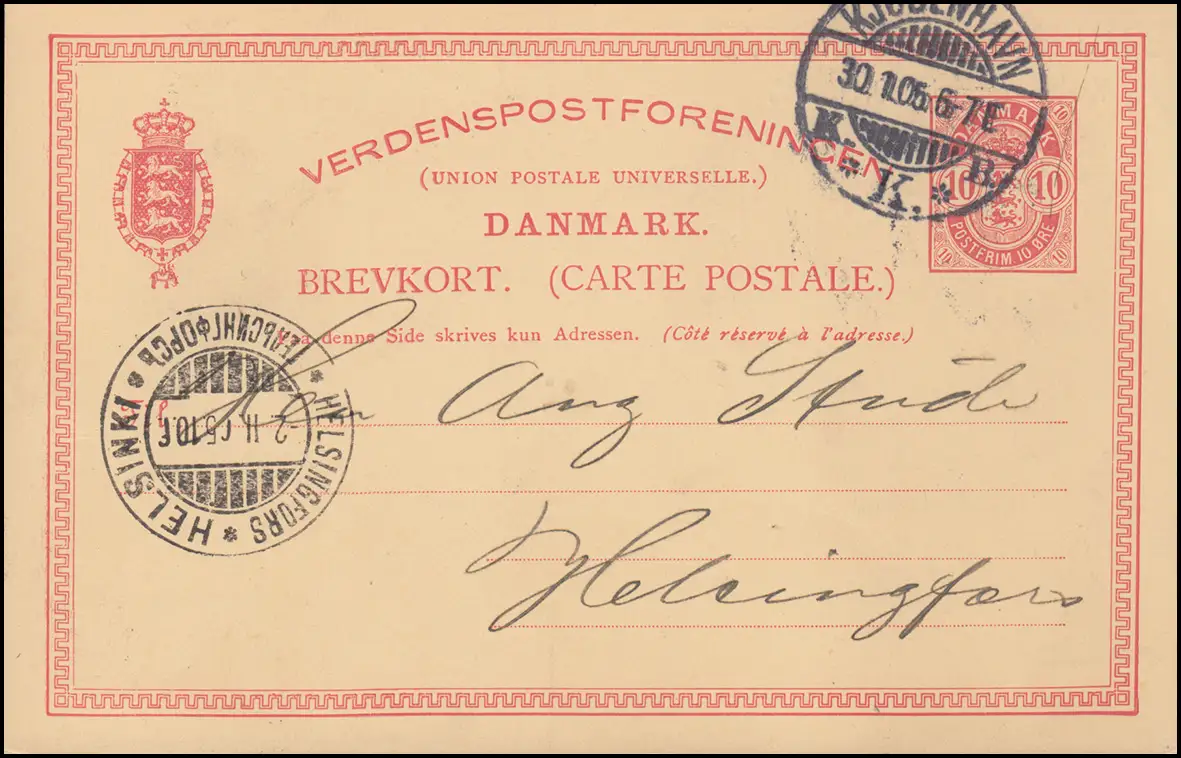 KJØBENHAVN
30.1.05. 6-7 E
K. K. B.
DANMARK
10 10 10 10
10 10
POSTFRIM. 10 ØRE
VERDENSPOSTFORENINGEN
(UNION POSTALE UNIVERSELLE.)
DANMARK.
BREVKORT. (CARTE POSTALE.)
Paa denne Side skrives kun Adressen. (Côté réservé à l'adresse.)
ГЕЛЬСИНГФОРСВ
HELSINKI
HELSINGFORS
2. II. 05. 10.F
Herr Aug Stude
Helsingfors